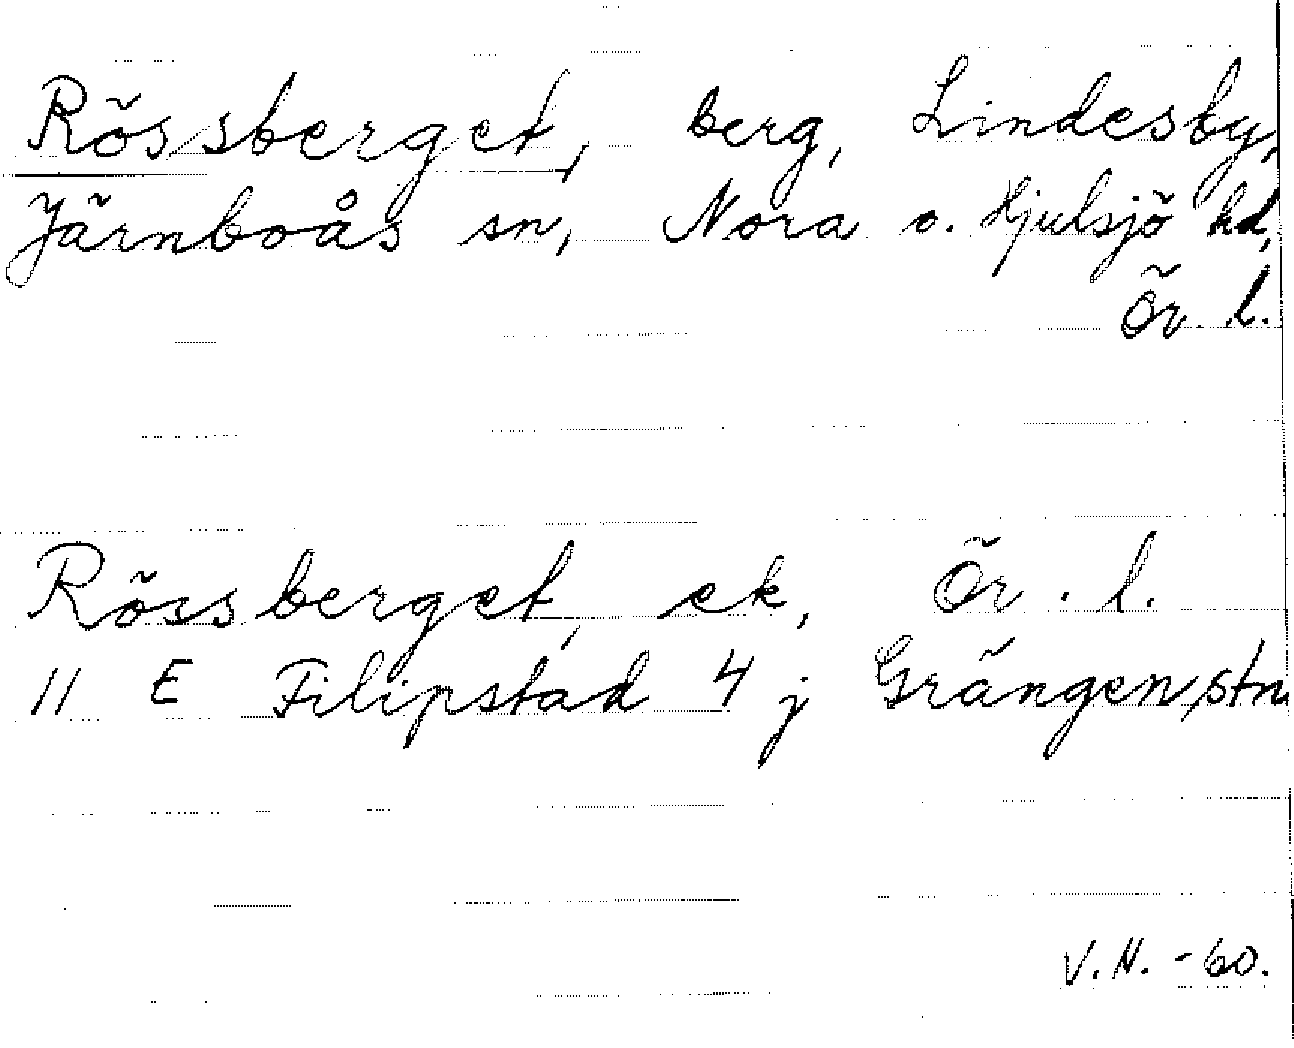 Rössberget, berg, Lindesby,
Järnboås sn, Nora o. Hjulsjö hd,
Ör. l.
Rössberget, ek, Ör. l.
11 E Filipstad 4 j Grängen, stn
V.N. -60.